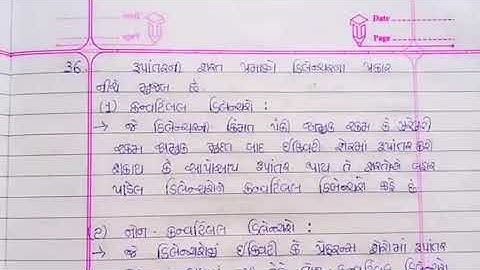 Date
Page
36. રૂપાંતરની શરત પ્રમાણે ડિબેન્ચરના પ્રકાર
નીચે મુજબ છે.
(1) કન્વર્ટિબલ ડિબેન્ચરો :
→ જે ડિબેન્ચરની કિંમત પૈકી અમુક રકમ કે પૂરેપૂરી
રકમ અમુક મુદત બાદ ઈક્વિટી શેરમાં રૂપાંતર કરી
શકાય કે આપોઆપ રૂપાંતર થાય તે શરતોએ બહાર
પાડેલ ડિબેન્ચરોને કન્વર્ટિબલ ડિબેન્ચરો કહે છે
(2) નોન-કન્વર્ટિબલ ડિબેન્ચરો :
→ જે ડિબેન્ચરોનું ઈક્વિટી કે પ્રેફરન્સ શેરોમાં રૂપાંતર